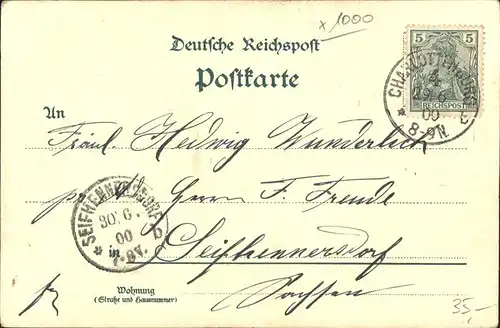 x 1000
Deutsche Reichspost
Postkarte
5 5
REICHSPOST
CHARLOTTENBURG
00
8-9N.
An
Fräul. Hedwig Wunderlich
Herrn F. Freude
SEIFHENNERSDORF
30. 6.
00
in Seifhennersdorf
Sachsen
Wohnung
(Straße und Hausnummer)
35,-